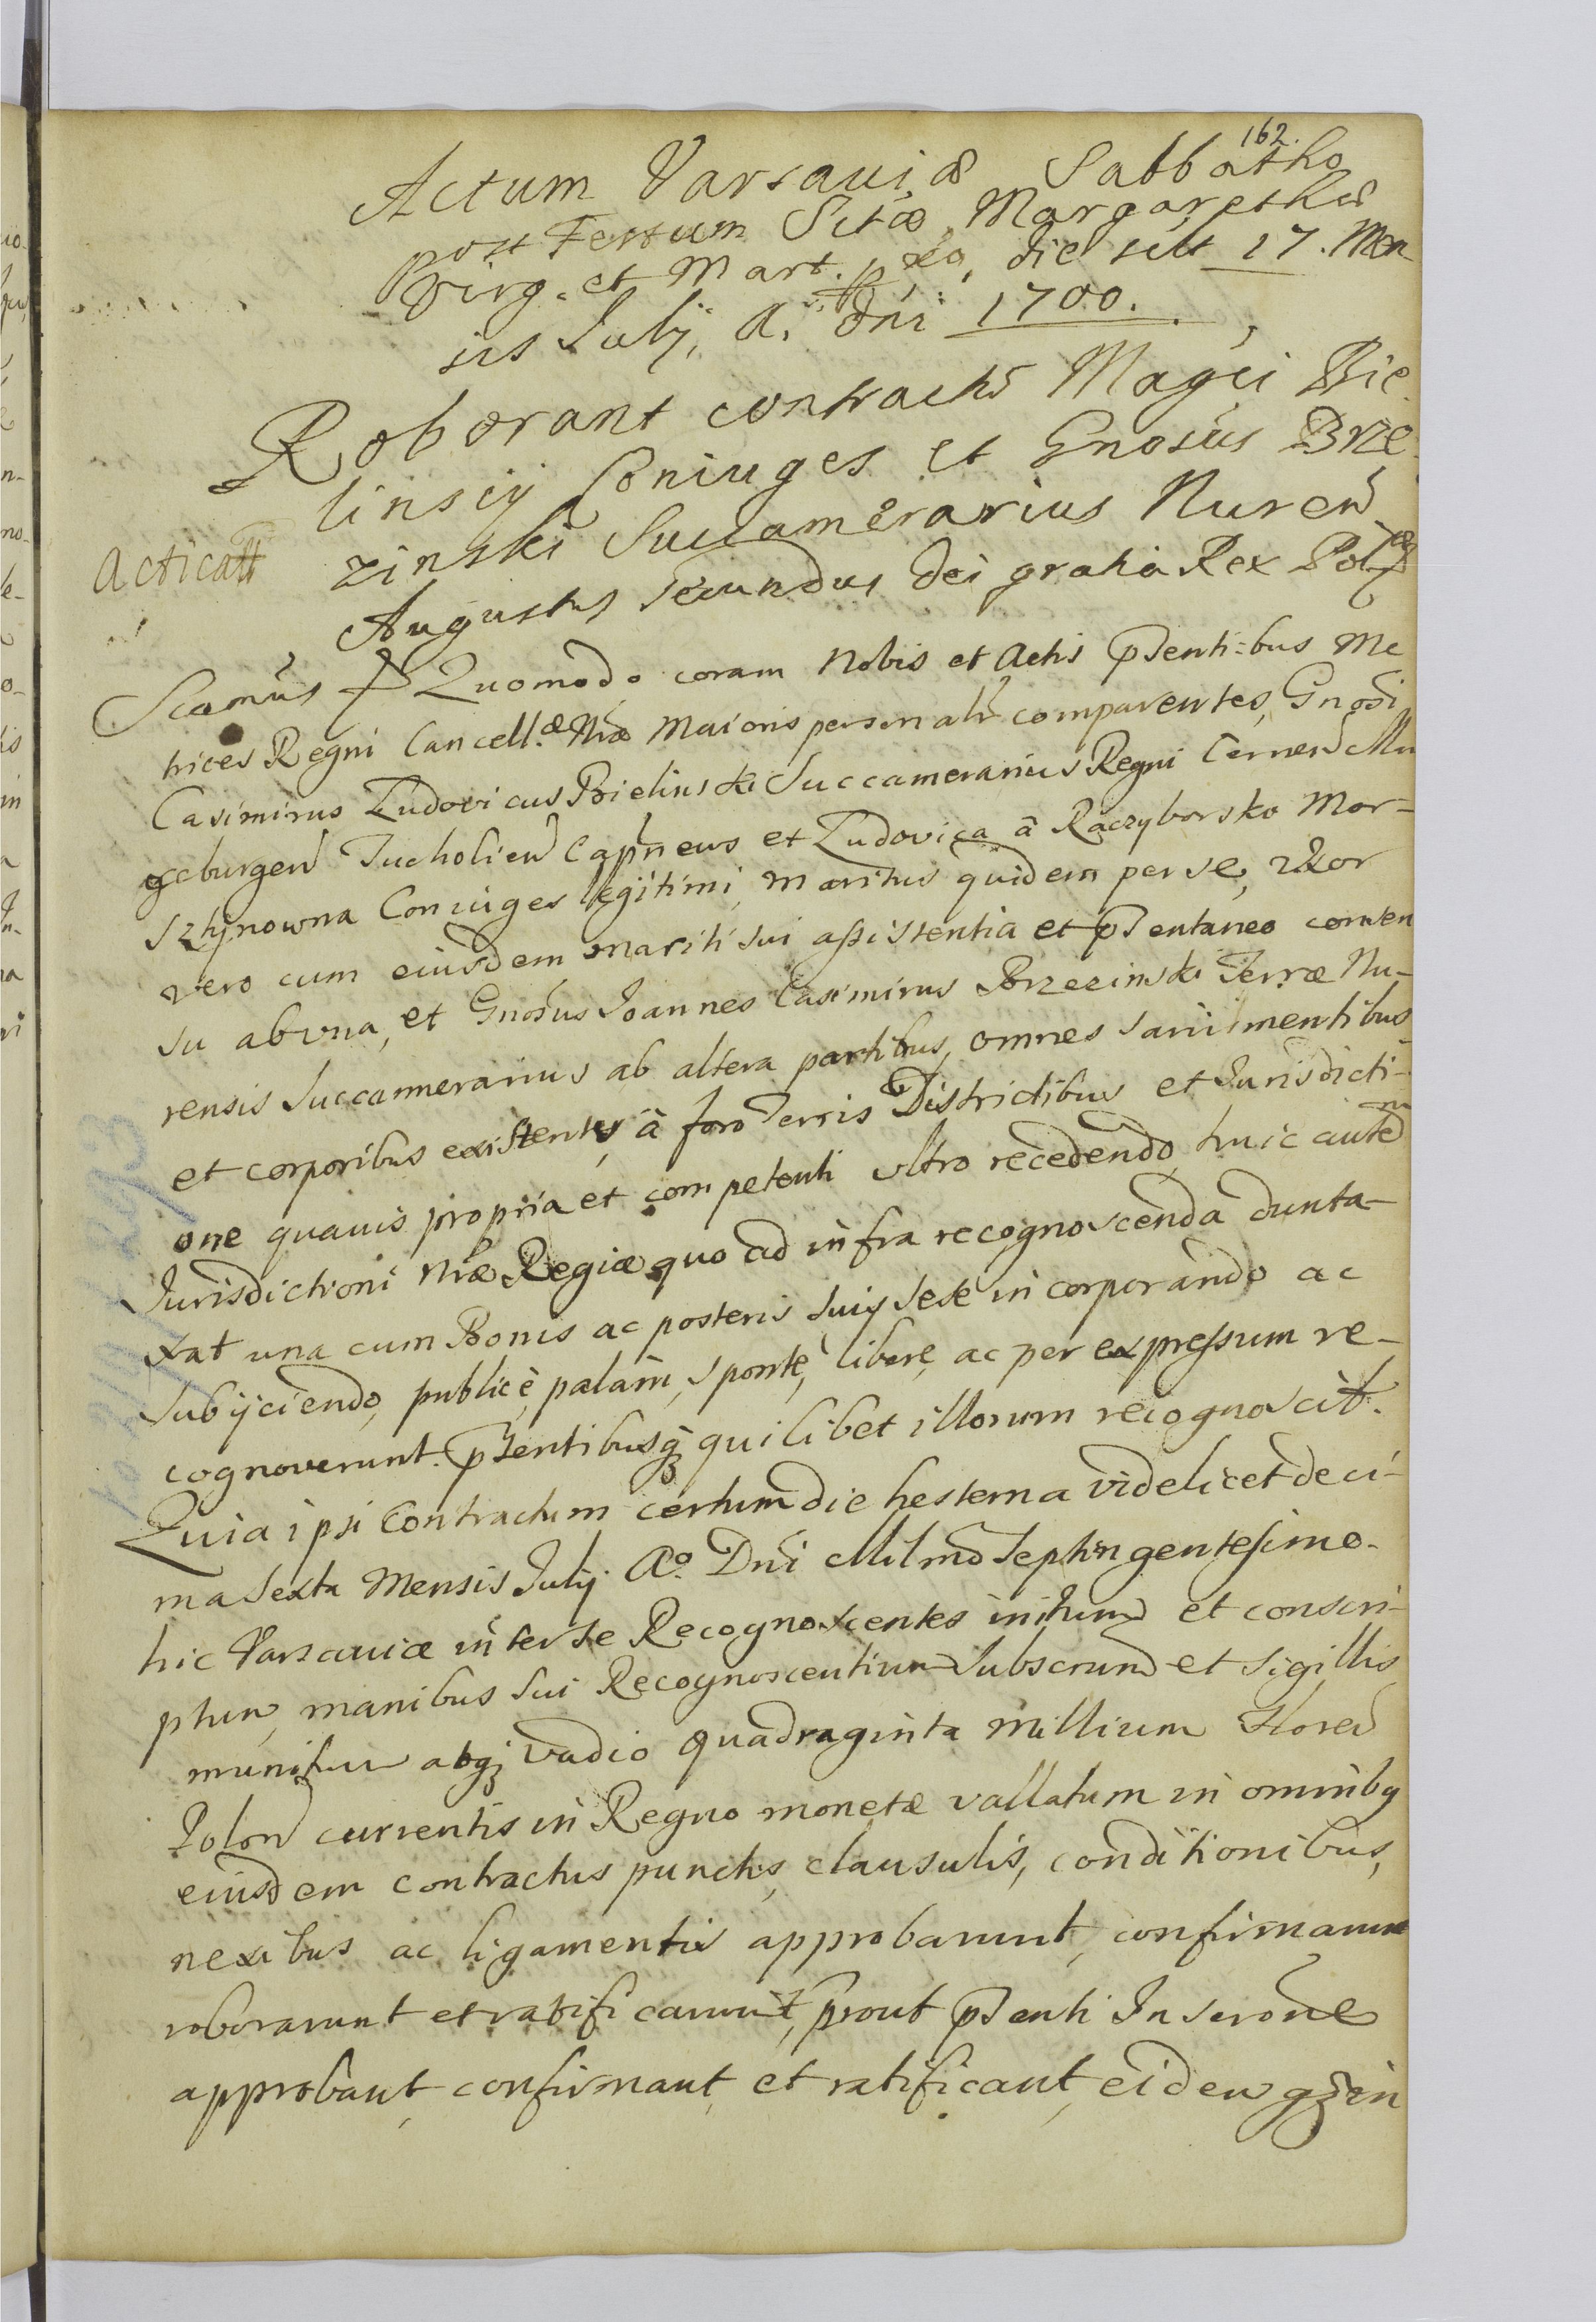 162.
Actum Varsaviæ Sabbatho
post Festum Sctæ Margarethæ
Virg. et Mart. pxo, die scilt 17. Men
sis Julij, A. Dni 1700.
Roborant contractū Magci Bie
linscÿ Coniuges et Gnosus Brze
zinski Succamerarius Nuren̄
Acticatt
Augustus Secundus Dei gratia Rex Pol
Scamus Quomodo coram Nobis et Actis p̄sentibus Me
trices Regni Cancell.æ Nræ Maioris personalr comparentes, Gnosi
Casimirus Ludovicus Bielinski Succamerarius Regni Cernen̄ Ma
geburgen̄ Tucholien̄ Capneus et Ludovica â Raczyborsko Mor-
sztynowna Coniuges legitimi, maritus quidem per se, uxor
vero cum eiusdem mariti sui assistentia et p̄sentaneo consen
su ab una, et Gnosus Joannes Casimirus Brzezinski Terræ Nu-
rensis Succamerarius ab altera partibus, omnes sani mentibus
et corporibus existentes, â foro Terris Districtibus et Jurisdicti-
one quavis propria et competenti ultro recedendo, huic autem
Jurisdictioni Nræ Regiæ quo ad infra recognoscenda dunta-
xat una cum Bonis ac posteris suis sese incorporando ac
subÿciendo, publicè, palàm, sponte, liberè, ac per expressum re-
cognoverunt. p̄sentibusq; quilibet illorum recognoscit.
Quia ipsi Contractum certum die hesterna videlicet deci-
ma sexta Mensis Julij Ao. Dni Milmo Septingentesimo
hic Varsaviæ inter se Recognoscentes initum et conscri-
ptum, manibus sui Recognoscentium subscrum et sigillis
munitum abq; vadio quadraginta millium Floren̄
Polon̄ currentis in Regno monetæ vallatum in omniby
eiusdem contractus punctis, clausulis, conditionibus,
nexibus ac ligamentis approbarunt, confirmarunt
roborarunt et ratificarunt, prout p̄senti Inscrone
approbant, confirmant, et ratificant, eidemq; in